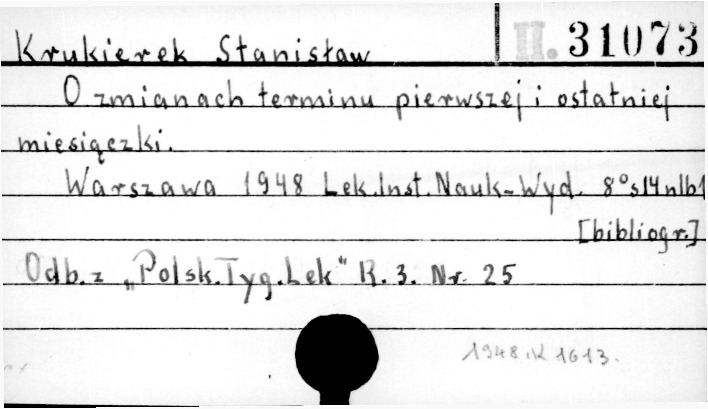 Krukierek Stanisław II. 31073
O zmianach terminu pierwszej i ostatniej
miesiączki.
Warszawa 1948 Lek.Inst.Nauk-Wyd. 8°s14nlb1
[bibliogr.]
Odb.z „Polsk.Tyg.Lek" R.3. Nr. 25
1948.K 1613.